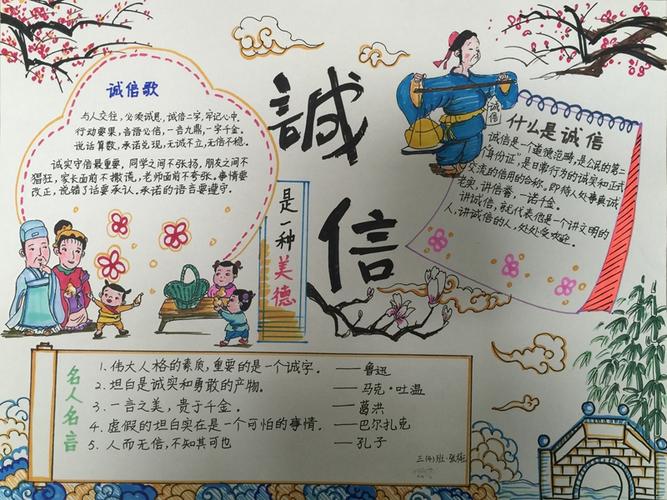 誠
信
是一种美德
诚信歌
与人交往,必须诚恳,诚信二字,牢记心中.
行动要果,言语必信,一言九鼎,一字千金。
说话算数,承诺兑现,无诚不立,无信不稳.
诚实守信最重要,同学之间不张扬,朋友之间不
猖狂,家长面前不撒谎,老师面前不夸张。事情要
改正,说错了话要承认。承诺的语言要遵守。
诚信
什么是诚信
诚信是一个道德范畴,是公民的第二
"身份证",是日常行为的诚实和正式
交流的信用的合称,即待人处事真诚
老实、讲信誉,一诺千金。
讲诚信,就代表他是一个讲文明的
人,讲诚信的人,处处受欢迎.
名人名言
1. 伟大人格的素质,重要的是一个诚字。——鲁迅
2. 坦白是诚实和勇敢的产物。——马克·吐温
3. 一言之美,贵于千金。——葛洪
4. 虚假的坦白实在是一个可怕的事情.——巴尔扎克
5. 人而无信,不知其可也——孔子
三(4)班·张